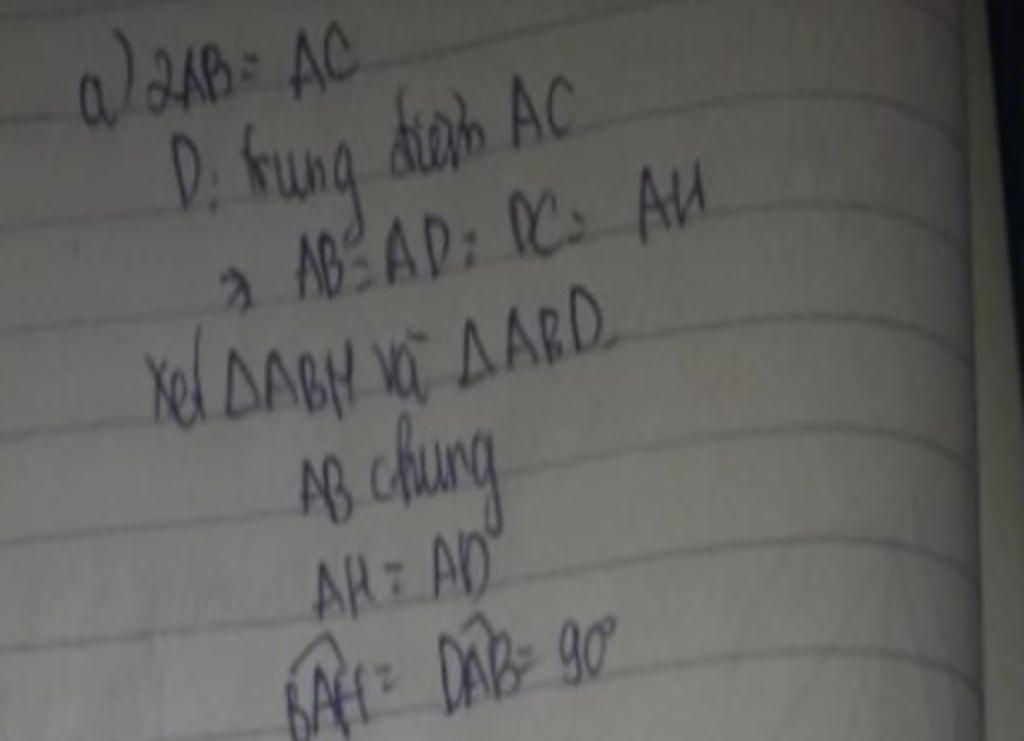 a) 2AB = AC
D: trung điểm AC
=> AB = AD = DC = AH
Xét ΔABH và ΔABD
AB chung
AH = AD
\widehat{BAH} = \widehat{DAB} = 90°